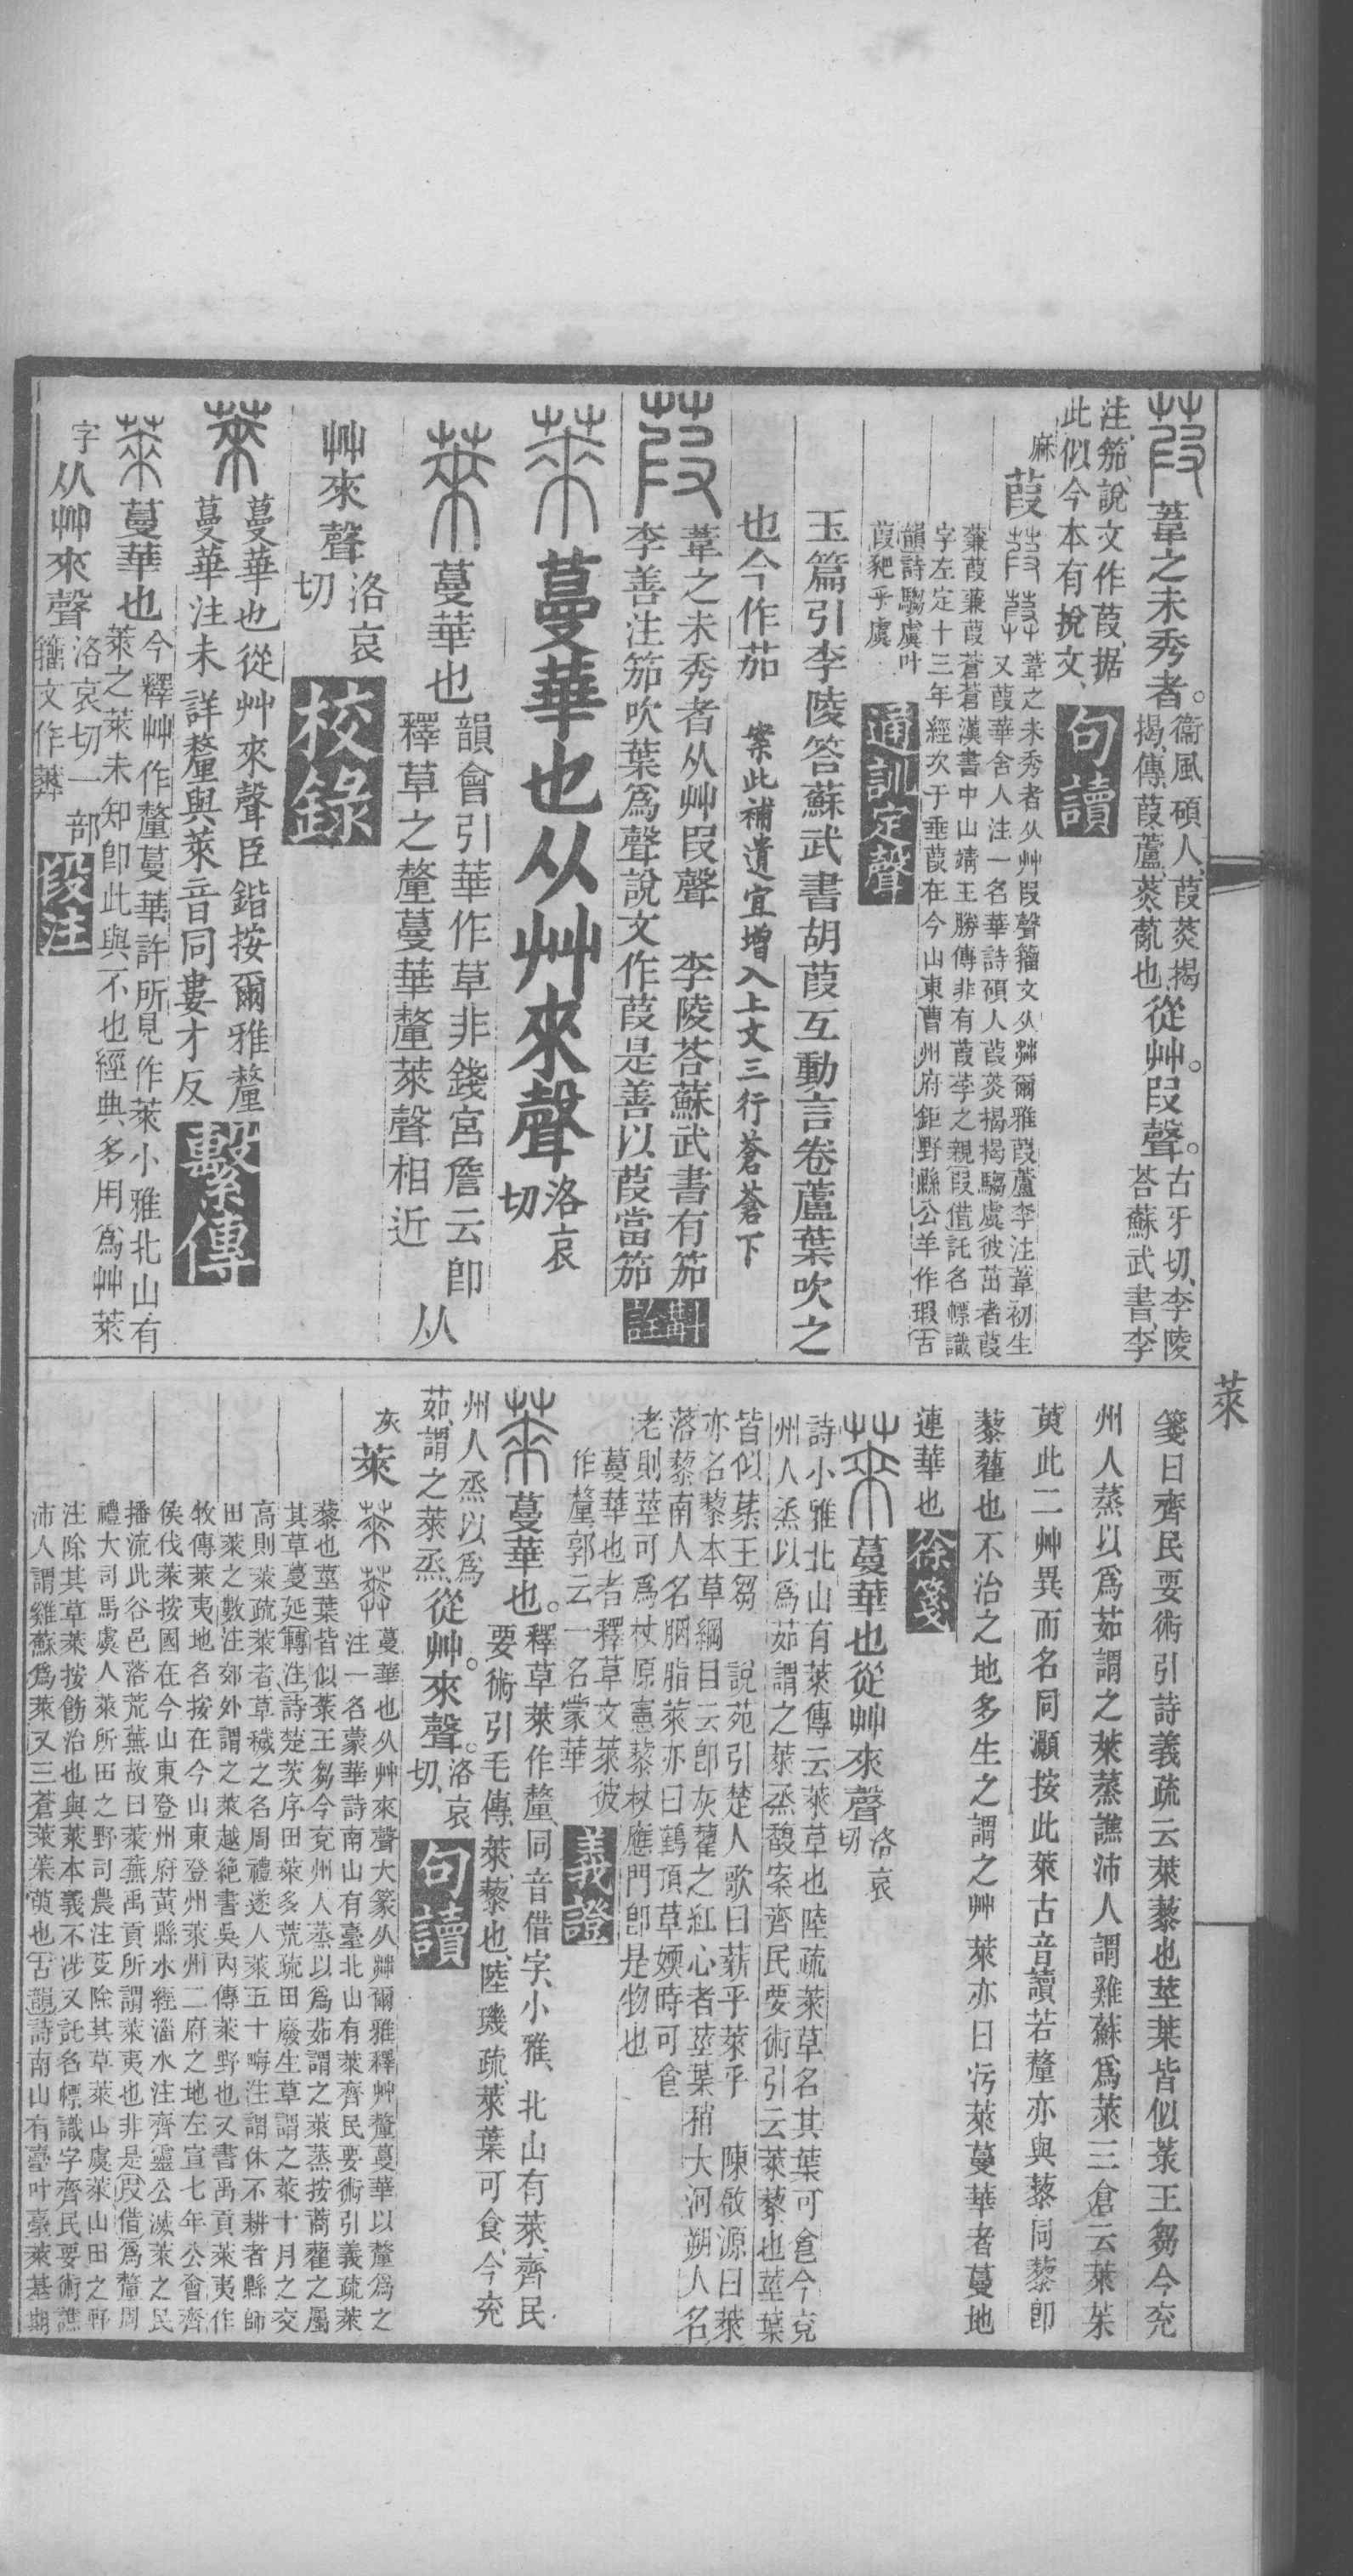 葭葦之未秀者。衞風碩人葭菼揭
揭傳葭蘆菼薍也從艸。叚聲。古牙切、李陵
荅蘇武書、李
注、笳、說文作葭、据
此似今本有捝文、句讀
麻
葭葦之未秀者从艸叚聲籀文从茻爾雅葭蘆李注葦初生
又葭華舍人注一名華詩碩人葭菼揭揭騶虞彼茁者葭
蒹葭蒹葭蒼蒼漢書中山靖王勝傳非有葭莩之親叚借託名幖識
字左定十三年經次于垂葭在今山東曹州府鉅野縣公羊作瑕古
韻詩騶虞叶
葭豝乎虞通訓定聲
玉篇引李陵答蘇武書胡葭互動言卷蘆葉吹之
也今作茄 案此補遺宜增入上文三行蒼蒼下
葭葦之未秀者从艸叚聲 李陵荅蘇武書有笳
李善注笳吹葉爲聲說文作葭是善以葭當笳斠詮
萊蔓華也从艸來聲洛哀
切
萊蔓華也韻會引華作草非錢宮詹云卽
釋草之釐蔓華釐萊聲相近从
艸來聲洛哀
切校錄
萊蔓華也從艸來聲臣鍇按爾雅釐
蔓華注未詳釐與萊音同婁才反繫傳
萊蔓華也今釋艸作釐蔓華許所見作萊小雅北山有
萊之萊未知卽此與不也經典多用爲艸萊
字从艸來聲洛哀切一部
籒文作𦽛段注
萊
箋曰齊民要術引詩義疏云萊藜也莖葉皆似菉王芻今兗
州人蒸以爲茹謂之萊蒸譙沛人謂雞蘇爲萊三倉云萊茱
萸此二艸異而名同灝按此萊古音讀若釐亦與藜同藜卽
藜藿也不治之地多生之謂之艸萊亦曰汚萊蔓華者蔓地
連華也徐箋
萊蔓華也從艸來聲洛哀
切
詩小雅北山有萊傳云萊草也陸疏萊草名其葉可食今兗
州人烝以爲茹謂之萊烝馥案齊民要術引云萊藜也莖葉
皆似菉王芻 說苑引楚人歌曰薪乎萊乎 陳啟源曰萊
亦名藜本草綱目云卽灰藋之紅心者莖葉稍大河朔人名
落藜南人名胭脂菜亦曰鶴頂草嫩時可食
老則莖可爲杖原憲藜杖應門卽是物也
蔓華也者釋草文萊彼
作釐郭云一名蒙華義證
萊蔓華也。釋草萊作釐、同音借字、小雅、北山有萊、齊民
要術引毛傳、萊、藜也、陸璣疏萊葉可食、今兗
州人烝以爲
茹、謂之萊烝從艸。來聲。洛哀
切、句讀
灰
萊蔓華也从艸來聲大篆从茻爾雅釋艸釐蔓華以釐爲之
注一名蒙華詩南山有臺北山有萊齊民要術引義疏萊
藜也莖葉皆似菉王芻今兗州人蒸以爲茹謂之萊蒸按藋之屬
其草蔓延轉注詩楚茨序田萊多荒疏田廢生草謂之萊十月之交
高則萊疏萊者草穢之名周禮遂人萊五十晦注謂休不耕者縣師
田萊之數注郊外謂之萊越絶書吳內傳萊野也又書禹貢萊夷作
牧傳萊夷地名按在今山東登州萊州二府之地左宣七年公會齊
侯伐萊按國在今山東登州府黃縣水經淄水注齊靈公滅萊之民
播流此谷邑落荒蕪故曰萊蕪禹貢所謂萊夷也非是叚借爲釐周
禮大司馬虞人萊所田之野司農注芟除其草萊山虞萊山田之野
注除其草萊按飭治也與萊本義不涉又託名幖識字齊民要術譙
沛人謂雞蘇爲萊又三蒼萊茱萸也古韻詩南山有臺叶臺萊基期